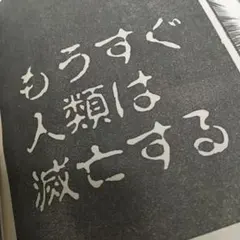 もうすぐ
人類は
滅亡する